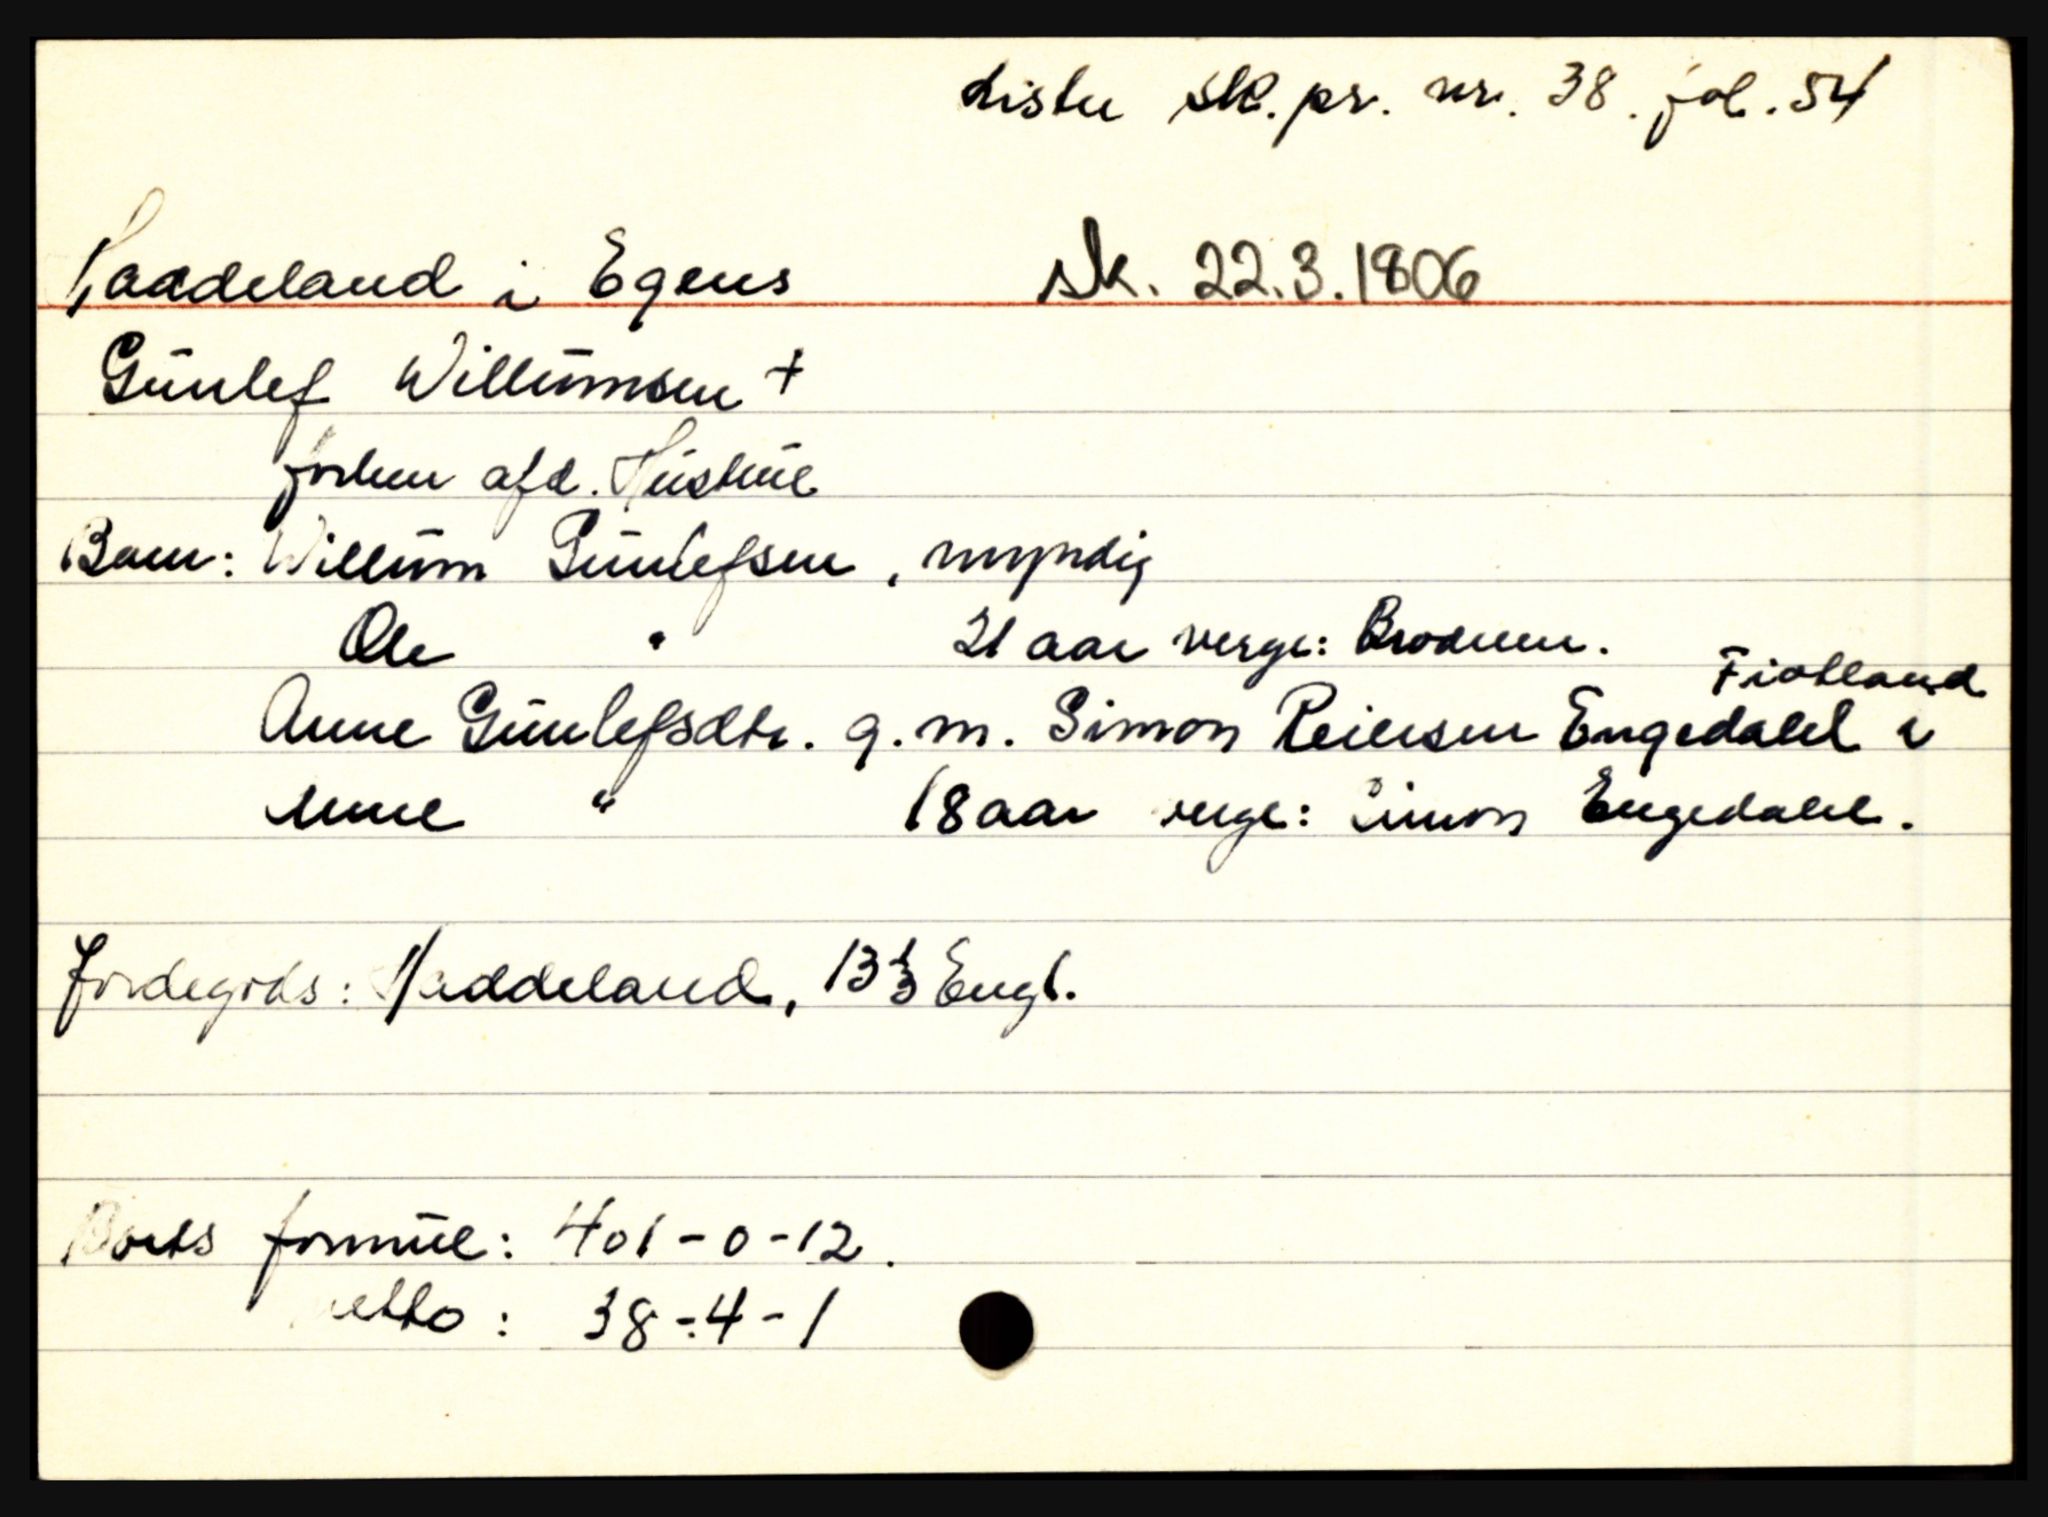 Lister sk. pr. nr. 38. fol. 54
Haddeland i Egens sk. 22.3.1806
Günlef Willümsen +
forhen afd. Hüstrüe
Barn: Willüm Günlefsen, myndig
Ole " 21 aar verge: Broderen.
Fiotland
Anne Günlefsdtr. g. m. Simon Reiersen Engedahl i
" 18 aar verge: Simon Engedahl.
Jordegods: Haddeland, 13 1/3 Engl.
Boets formüe: 401-0-12.
netto: 38-4-1